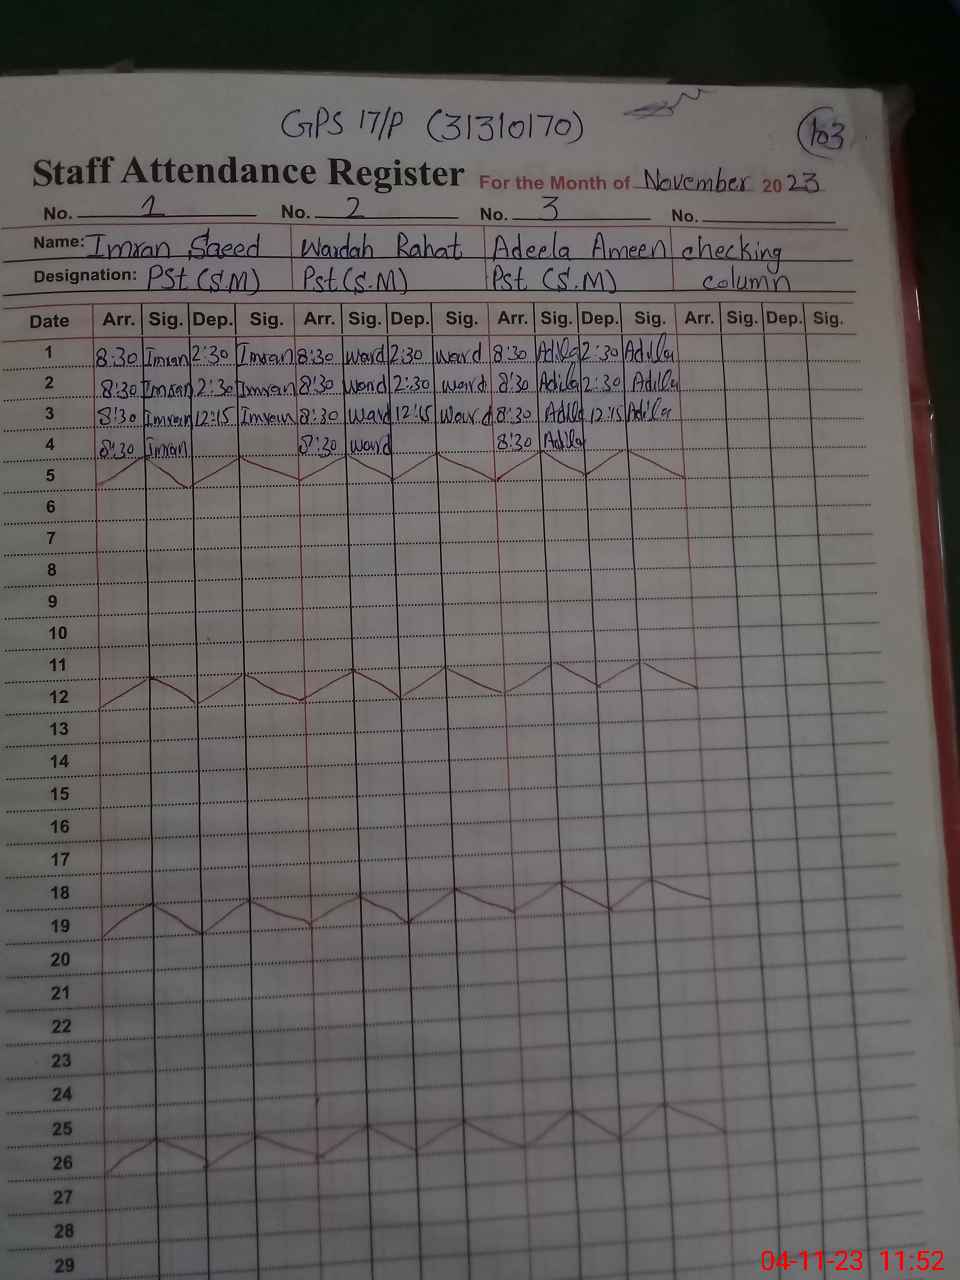 GPS 17/P (31310170)
103
Staff Attendance Register For the Month of November 2023
No. 1 No. 2 No. 3 No.
Name: Imran Saeed Wardah Rahat Adeela Ameen checking
Designation: PSt (S.M) Pst (S.M) Pst (S.M) column
Date Arr. Sig. Dep. Sig. Arr. Sig. Dep. Sig. Arr. Sig. Dep. Sig. Arr. Sig. Dep. Sig.
1 8:30 Imran 2:30 Imran 8:30 Ward 2:30 Ward 8:30 Adila 2:30 Adila
2 8:30 Imran 2:30 Imran 8:30 Ward 2:30 Ward 8:30 Adila 2:30 Adila
3 8:30 Imran 12:15 Imran 8:30 Ward 12:15 Ward 8:30 Adila 12:15 Adila
4 8:30 Imran 8:30 Ward 8:30 Adila
5
6
7
8
9
10
11
12
13
14
15
16
17
18
19
20
21
22
23
24
25
26
27
28
29
04-11-23 11:52